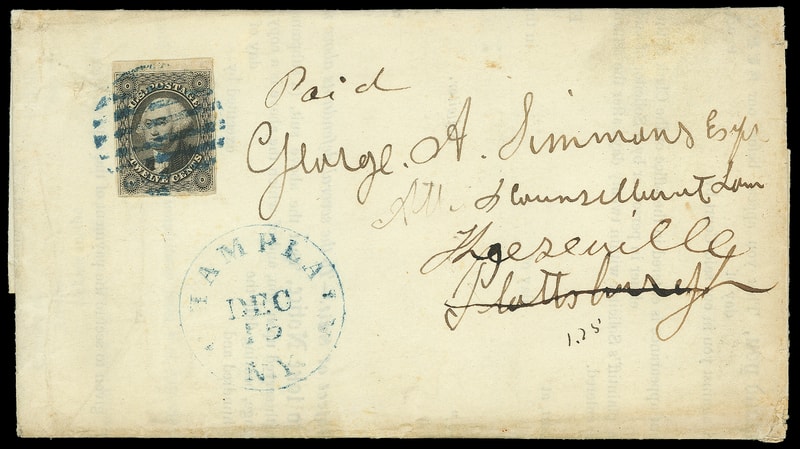 U.S. POSTAGE
TWELVE CENTS
Paid
George. A. Simmons Esqr
Att. & Counsellor at Law
Keeseville
Plattsburgh
1.25
STAMPLA
DEC
NY